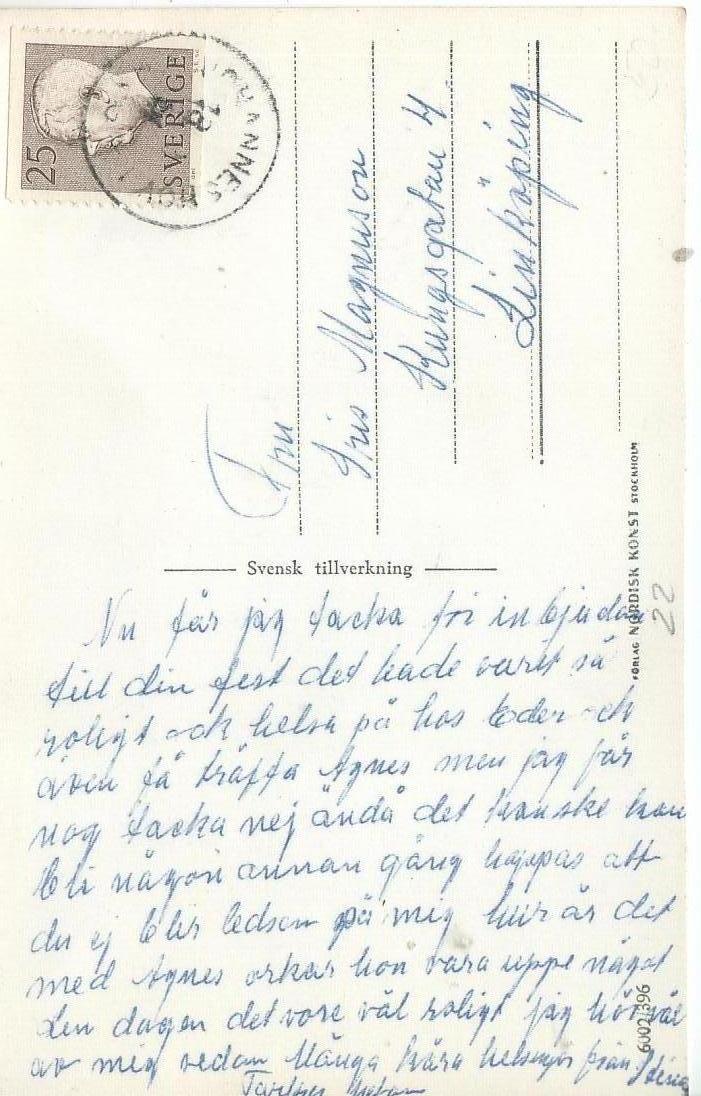 25
SVERIGE
JOHANNES
Fru
Iris Magnuson
Kungsgatan 4
Linköping
Svensk tillverkning
FÖRLAG NORDISK KONST STOCKHOLM
22
Nu får jag tacka för inbjudan
till din fest det hade varit så
roligt och helsa på hos Eder och
även få träffa Agnes men jag får
nog tacka nej ändå det kanske kan
bli någon annan gång hoppas att
du ej blir ledsen på mig hur är det
med Agnes orkar hon vara uppe något
den dagen det vore väl roligt jag hör väl
av mig sedan Många kära helsningar från
6002/396